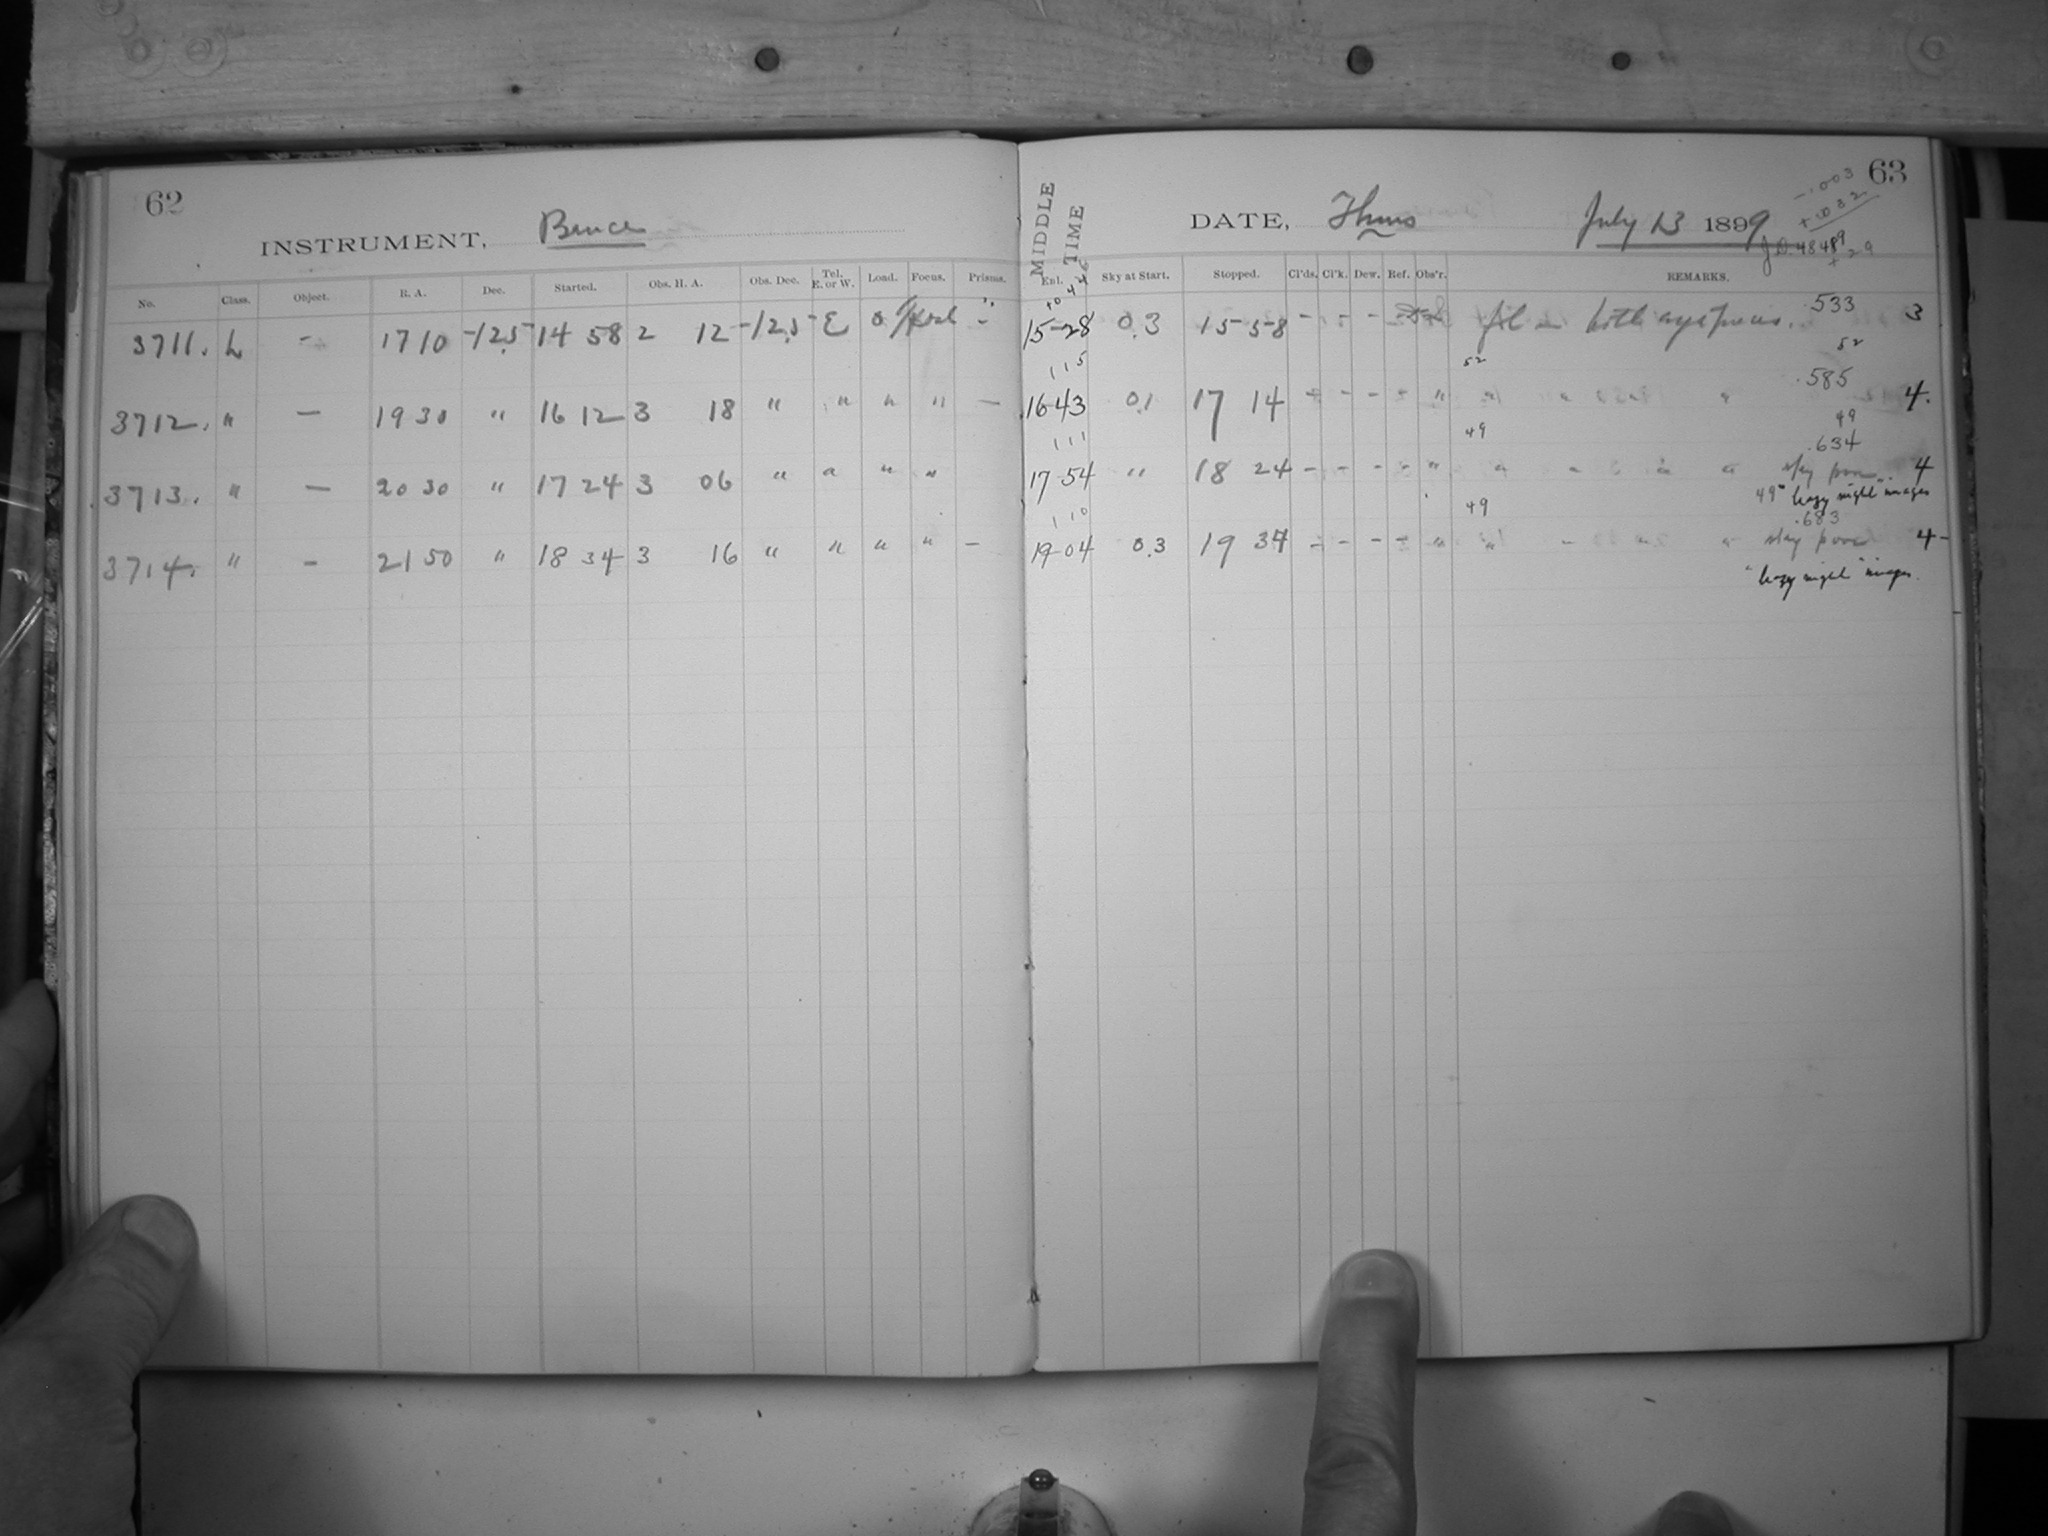 62
INSTRUMENT, Bruce
No. Class. Object. R. A. Dec. Started. Obs. H. A. Obs. Dec. Tel. E. or W. Load. Focus. Prisms.
3711. L - 17 10 -12.5 14 58 2 12 -12.5 E
3712. " - 19 30 " 16 12 3 18 " " " " -
3713. " - 20 30 " 17 24 3 06 " " " "
3714. " - 21 50 " 18 34 3 16 " " " " -
63
MIDDLE TIME
DATE, Thurs July 13 1899
-.003
+.032
J.D. 4848
+ 29
Exl. Sky at Start. Stopped. Cl'ds. Cl'k. Dew. Ref. Obs'r. REMARKS.
.533
15-28 0.3 15 58 - - - 3
115 52 52
.585
16 43 0.1 17 14 - - - - " 4.
111 49 49
.634
17 54 " 18 24 - - - - " " sky poor 4
"hazy night" images
110 49 49
.683
19 04 0.3 19 34 - - - - " " sky poor 4-
"hazy night" images.